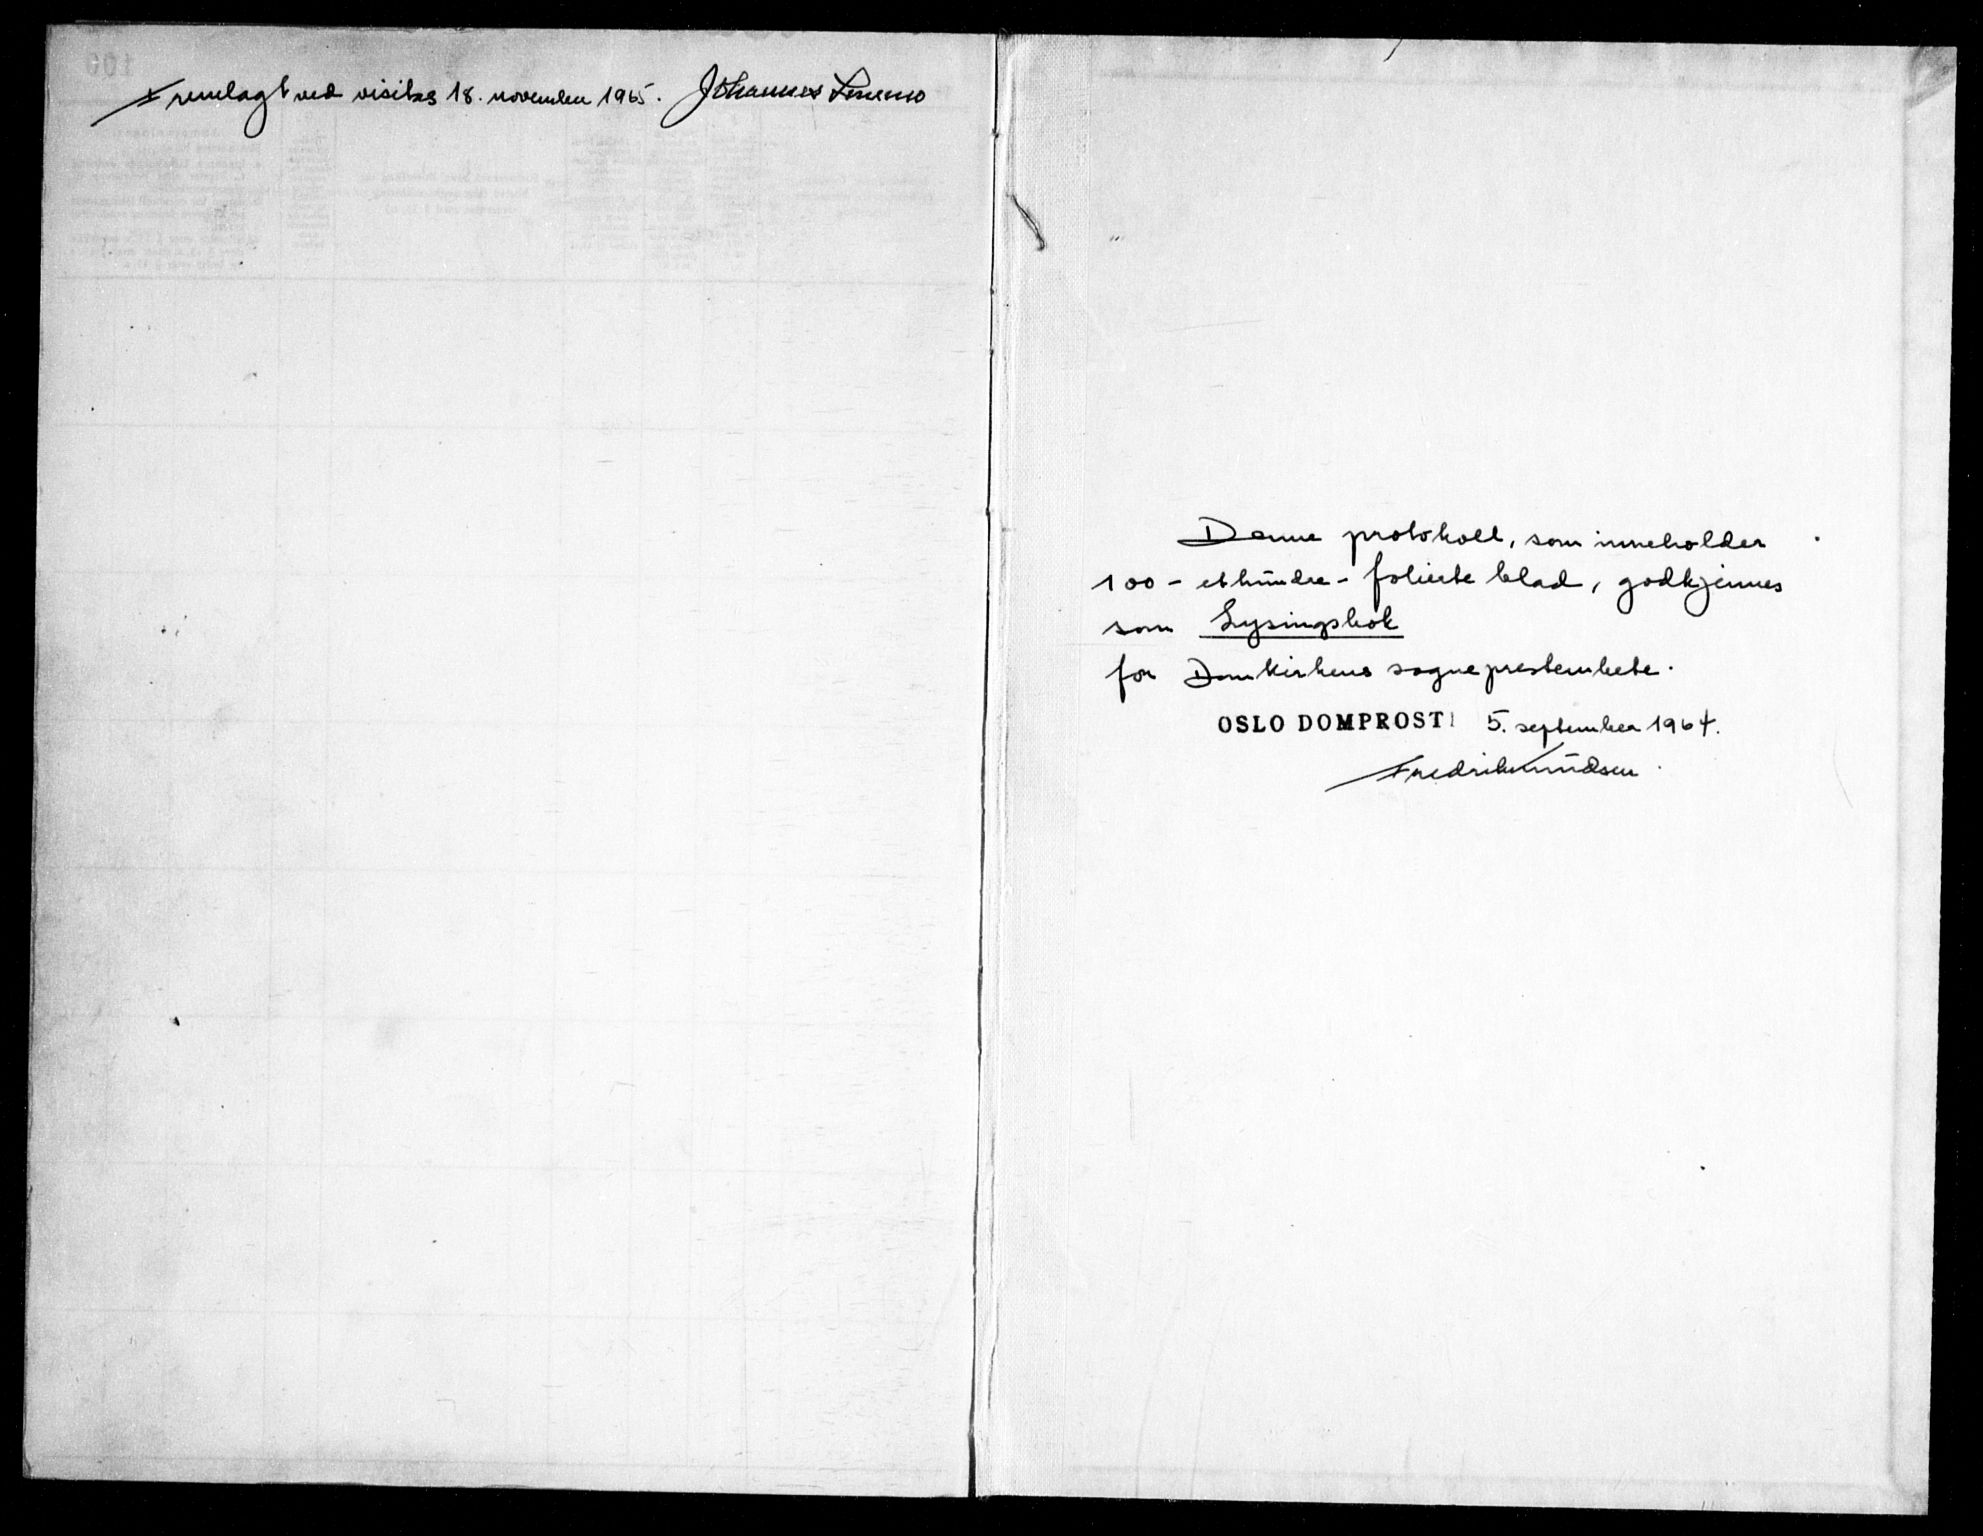 Fremlagt ved visitas 18. november 1965. Johannes Smemo
Denne protokoll, som inneholder
100 - ethundre - folierte blad, godkjennes
som Lysingsbok
for Domkirkens sogneprestembete.
OSLO DOMPROSTI 5. september 1964.
Fredrik Knudsen.